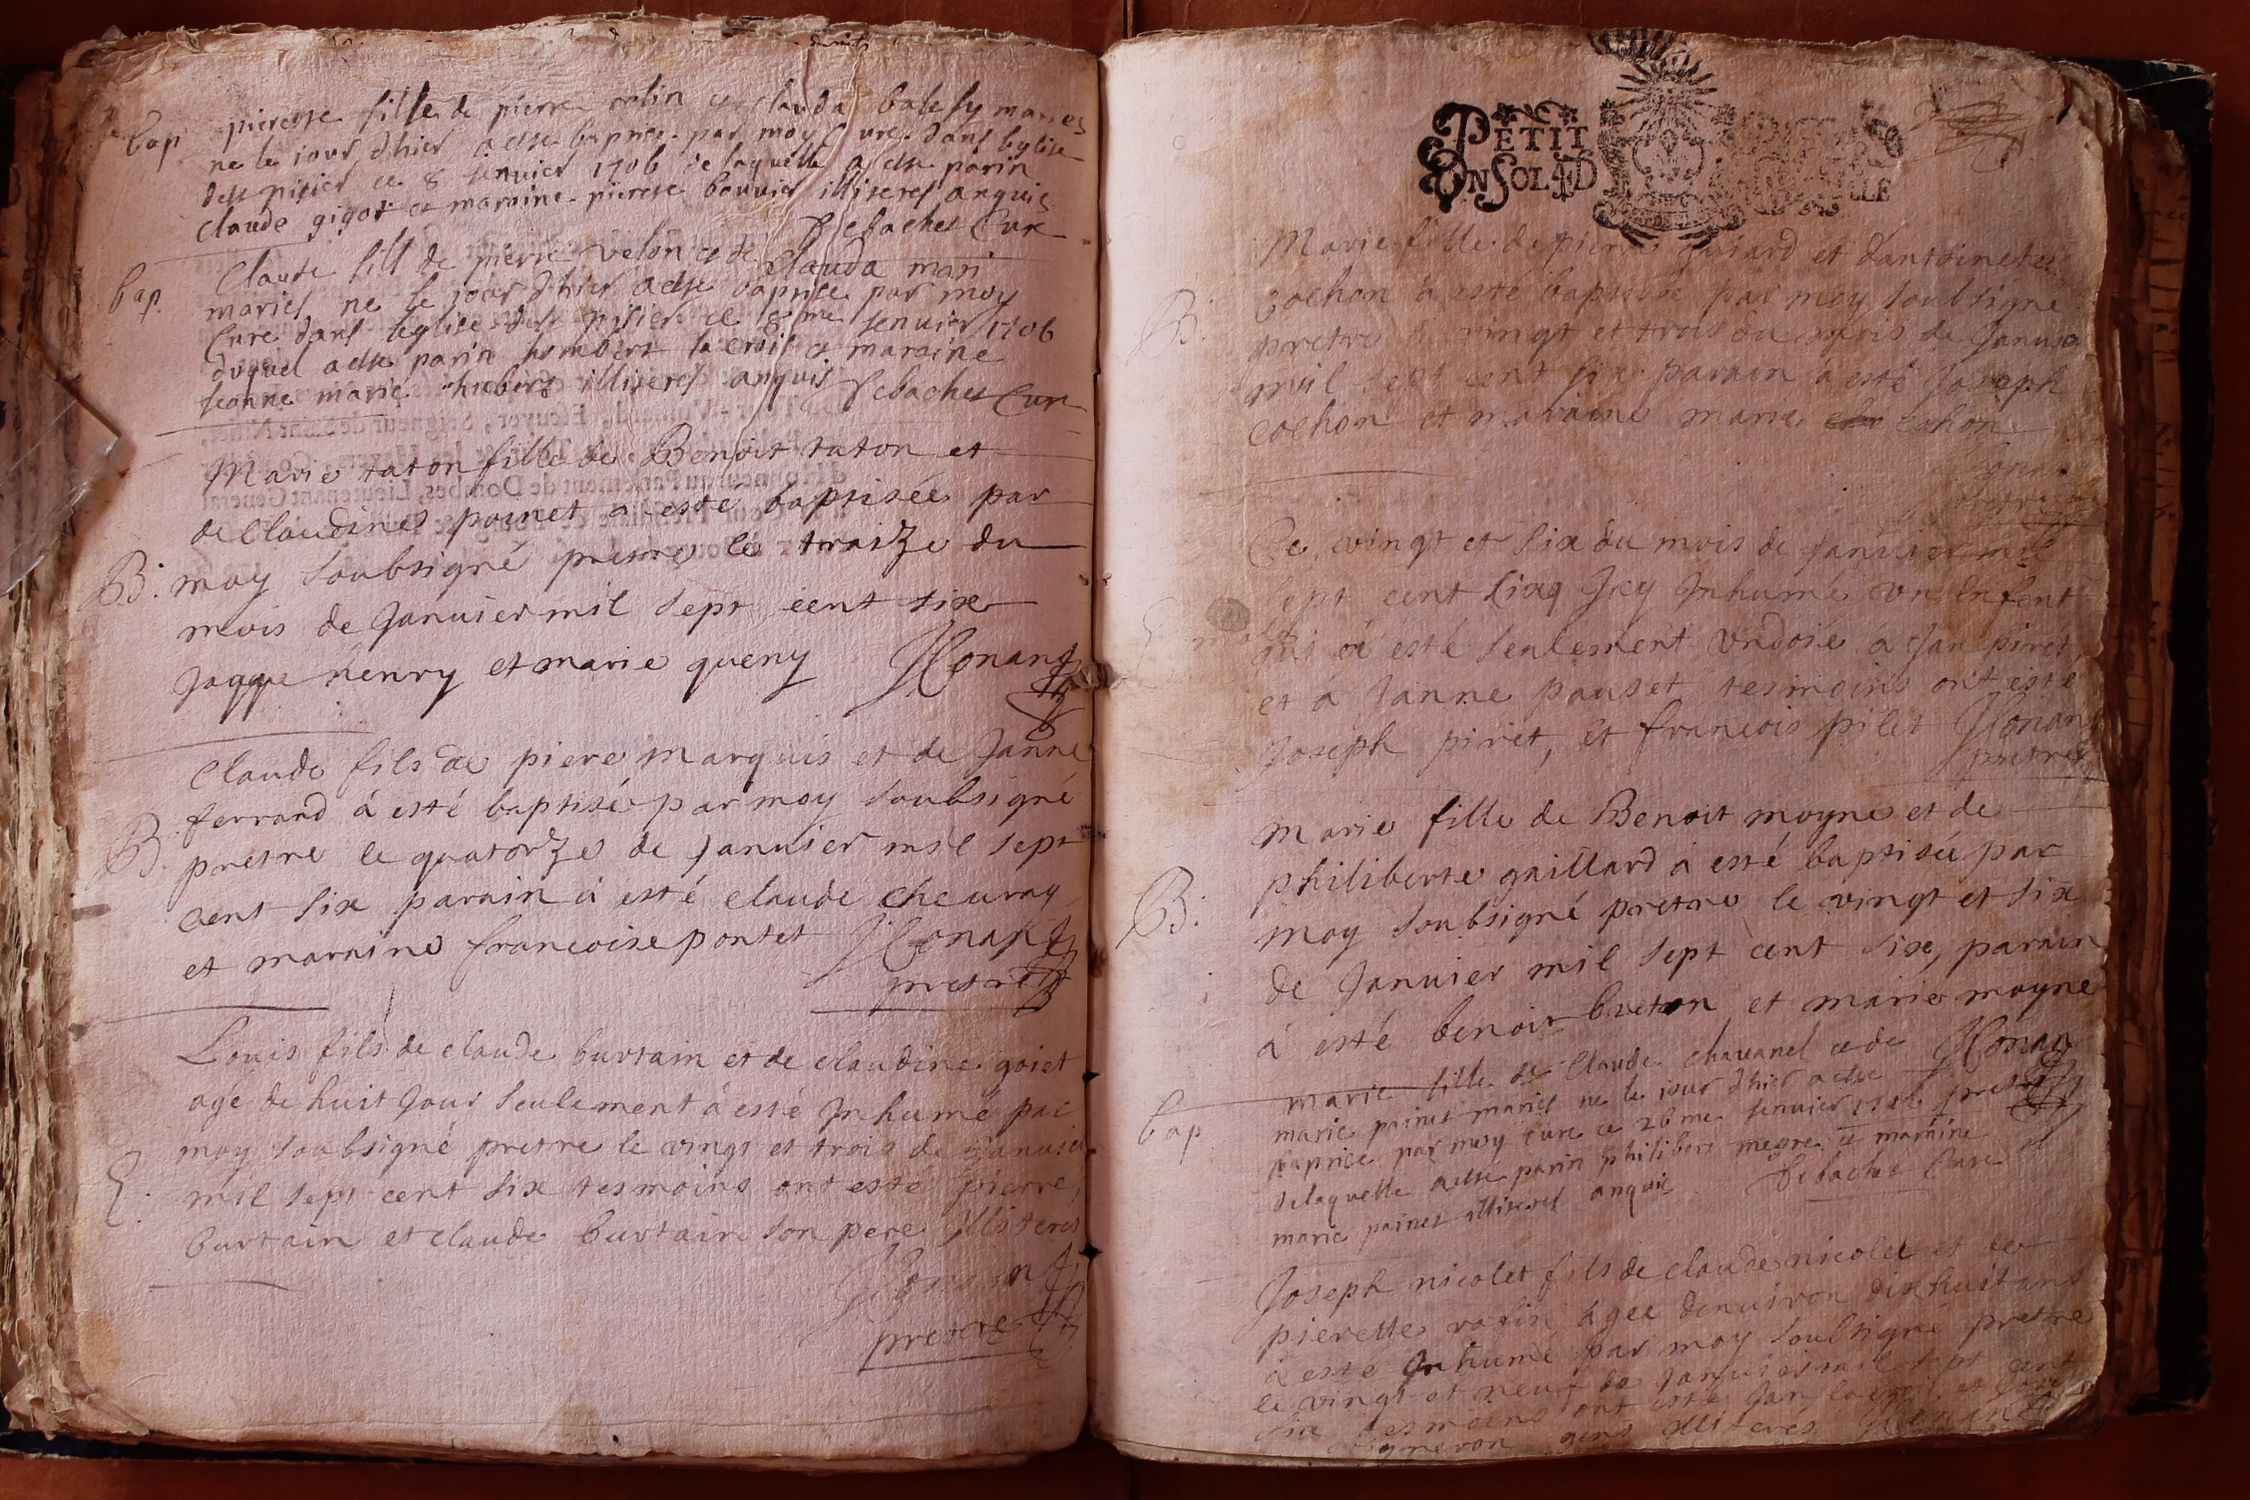 bap
pierette fille de pierre colin et clauda balesy maries
ne le jour d'hier a este baptise par moy Cure dans leglise
dest pisier ce 8 jenvier 1706 de laquelle a este parin
claude gigot et maraine pierette bouvier illiteres anquis
Debaches Cure
bap.
Claude fill de pierre velon et de clauda mari
maries ne le jour d'hier a este baptise par moy
Cure dans leglise dest pisier ce 8me jenvier 1706
duquel a este parin humbert la crois et maraine
jeanne marie hubert illiteres anquis Debaches Cure
Marie taton fille de Benoit taton et
de Claudine poinet a esté baptisée par
B. moy soubsigné prestre le traize du
mois de Januier mil sept cent six
Jaque henry et marie queny JConant
Claude fils de piere marquis et de Janne
ferrand á esté baptisée par moy soubsigné
B. prestre le quatorze de Januier mil sept
cent six parain á esté claude cheuray
et maraine francoise pontet JConant
prestre
Louis fils de claude burtain et de claudine goiet
age de huit Jour seulement á esté Inhumé par
moy soubsigné prestre le vingt et trois de Januier
E. mil sept cent six tesmoins ont esté pierre,
burtain et claude burtain son pere illiteres
JConant
prestre
PETIT
EN SOL 4 D
LLE
Marie fille de pierre gaiard et dantoinette
B. cochon á esté baptisée par moy soubsigné
prestre le vingt et trois du mois de Januier
mil sept cent six parain á esté Joseph
cochon et maraine marie cohon
Ce vingt et six du mois de januier mil
sept cent six Jay Inhumé un Enfent
qui á esté seulement Vndoié a Jan piret
et á Janne pauset tesmoins ont esté
Joseph piret, et francois pilet JConant
prestre
Marie fille de Benoit moyne et de
philiberte gaillard á esté baptisée par
B. moy soubsigné prestre le vingt et six
de Januier mil sept cent six, parain
á esté benoit breton et marie moyne
JConant
prestre
bap
marie fille de Claude chavanel et de
marie painet maries ne le jour d'hier a este
baptise par moy cure ce 26me jenvier 1706
delaquelle a este parin philibert megre et maraine
marie painet illiteres anquis Debaches Cure
Joseph nicolet fils de claude nicolet et de
pierette ratin ágée denuiron dix huit ans
á esté Inhumé par moy soubsigné prestre
le vingt et neuf de Januier mil sept cent
six tesmoins ont esté Jan lacroit et
vigneron gens illiteres JConant